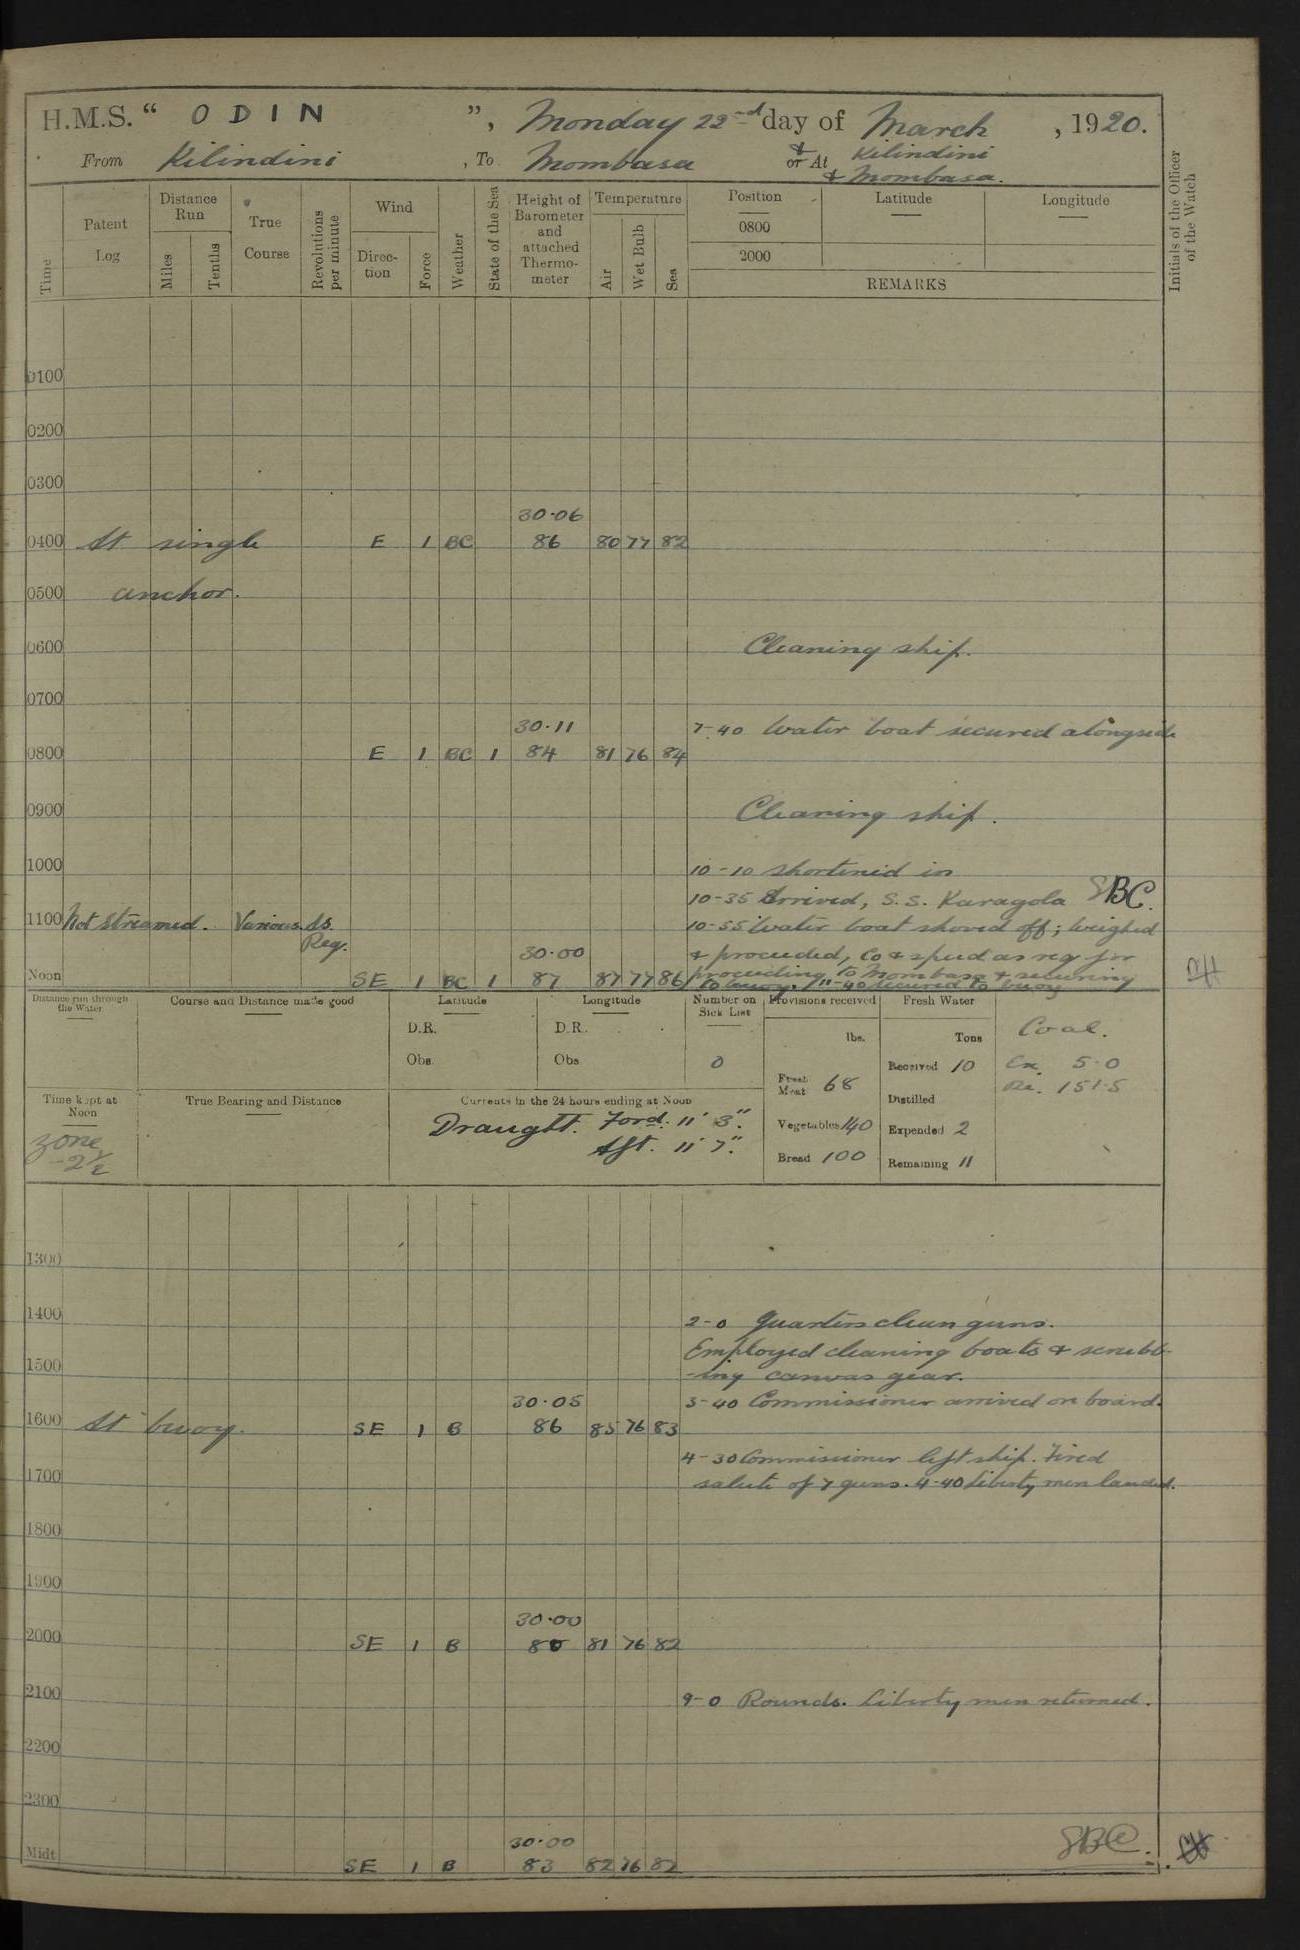 H.M.S. “ ODIN ”, Monday 22nd day of March , 1920.
From Kilindini , To Mombasa & or At Kilindini
& Mombasa.
Time
Patent Log
Distance Run
Miles
Tenths
True Course
Revolutions per minute
Wind
Direction
Force
Weather
State of the Sea
Height of Barometer and attached Thermometer
Temperature
Air
Wet Bulb
Sea
Position
Latitude
Longitude
0800
2000
REMARKS
Initials of the Officer of the Watch
0100
0200
0300
30.06
0400 At single E 1 BC 86 80 77 82
0500 anchor.
0600 Cleaning ship.
0700
30.11 7-40 Water boat secured alongside
0800 E 1 BC 1 84 81 76 84
0900 Cleaning ship.
1000 10-10 Shortened in
10-35 Arrived, S.S. Karagola SBC.
1100 Not streamed. Various. As 10-55 Water boat shoved off; weighed
Req. 30.00 & proceeded, Co & speed as req for
proceeding to Mombasa & securing
Noon SE 1 BC 1 87 87 77 86 to buoy. 11-40 secured to buoy
Distance run through the Water
Course and Distance made good
Latitude
D.R.
Obs.
Longitude
D.R.
Obs.
Number on Sick List
0
Provisions received
lbs.
Fresh Meat 68
Vegetables 140
Bread 100
Fresh Water
Tons
Received 10
Distilled
Expended 2
Remaining 11
Coal.
Ex. 5.0
Re. 151.5
Time kept at Noon
zone
-2½
True Bearing and Distance
Currents in the 24 hours ending at Noon
Draught. Ford. 11' 3".
Aft. 11' 7".
1300
1400 2-0 Quarters clean guns.
Employed cleaning boats & scrubb-
1500 -ing canvas gear.
30.05 3-40 Commissioner arrived on board.
1600 At buoy. SE 1 B 86 85 76 83
4-30 Commissioner left ship. Fired
1700 salute of 7 guns. 4-40 Liberty men landed.
1800
1900
30.00
2000 SE 1 B 80 81 76 82
2100 9-0 Rounds. Liberty men returned.
2200
2300
30.00 SBC.
Midt SE 1 B 83 82 76 82